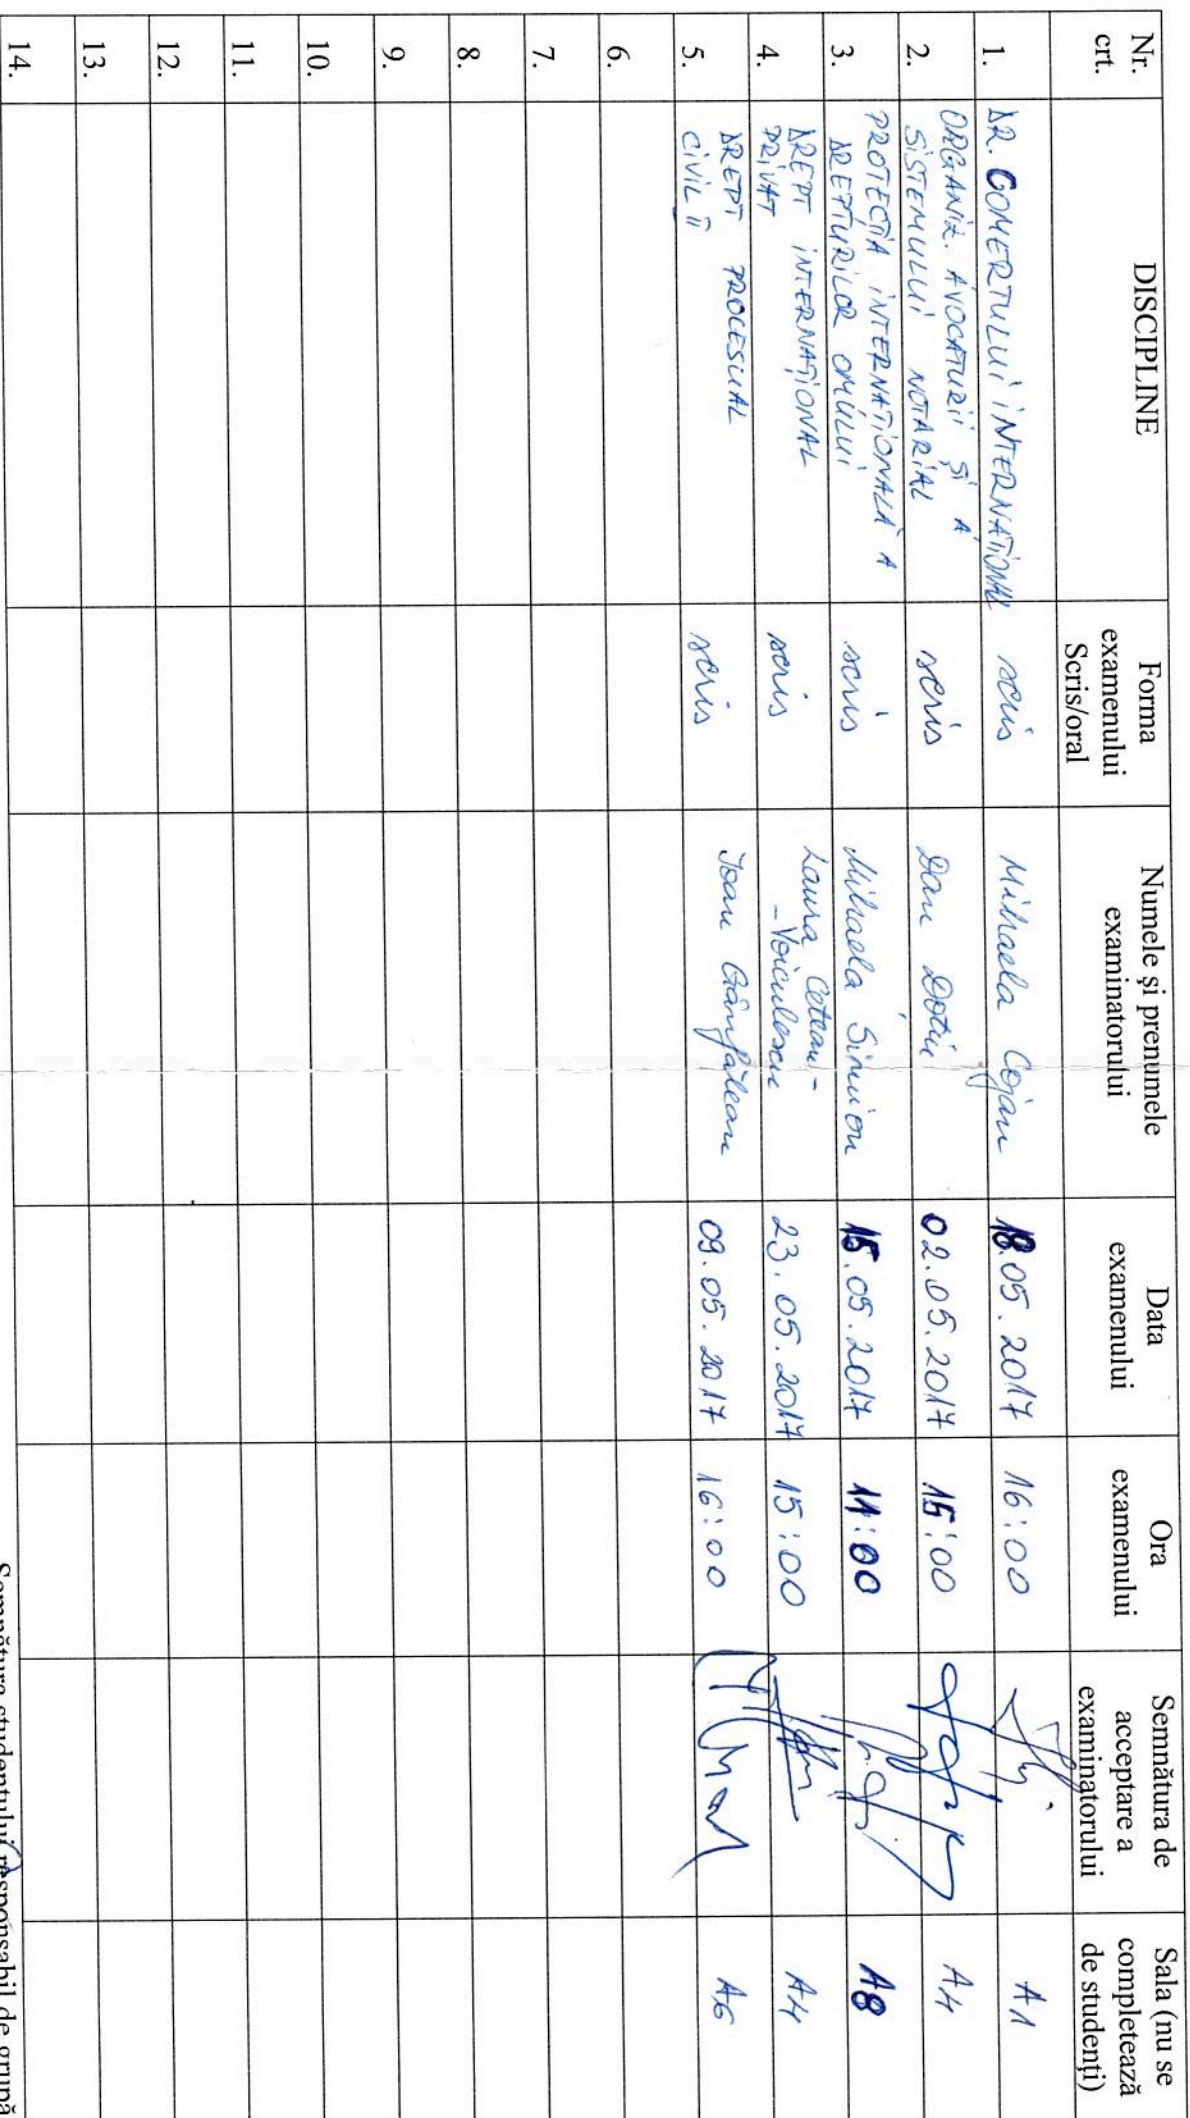 Nr. crt. DISCIPLINE Forma examenului Scris/oral Numele și prenumele examinatorului Data examenului Ora examenului Semnătura de acceptare a examinatorului Sala (nu se completează de studenți)
1. DR. COMERTULUI INTERNAȚIONAL scris Mihaela Cojan 18.05.2017 16:00 A1
2. ORGANIZ. AVOCATURII ȘI A SISTEMULUI NOTARIAL scris Dan 02.05.2017 15:00 A4
3. PROTECTIA INTERNAȚIONALĂ A DREPTURILOR OMULUI scris Mihaela Simion 15.05.2017 11:00 A8
4. DREPT INTERNAȚIONAL PRIVAT scris Laura Cetean-
-Voiculescu 23.05.2017 15:00 A4
5. DREPT PROCESUAL CIVIL II scris Ioan Gânfălean 09.05.2017 16:00 A6
6.
7.
8.
9.
10.
11.
12.
13.
14.
Semnătura studentului responsabil de grupă